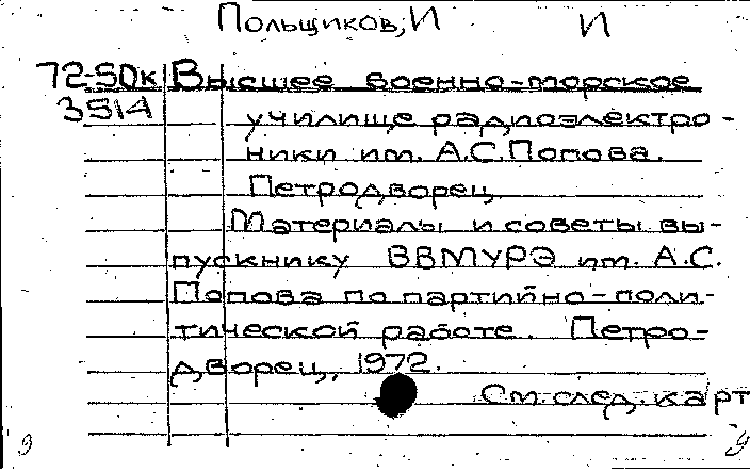 Польщиков, И И
72-50к Высшее военно-морское
3514
училище радиоэлектро-
ники им. А.С. Попова.
Петродворец
Материалы и советы вы-
пускнику ВВМУРЭ им. А.С.
Попова по партийно-поли-
тической работе. Петро-
дворец, 1972.
См. след. карт